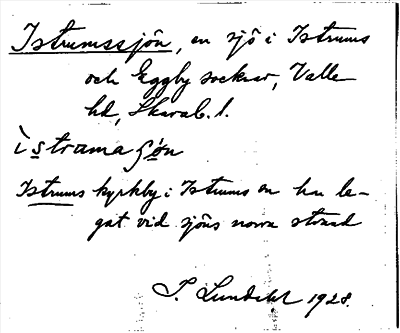 Istrumssjön, en sjö i Istrums
och Eggby socknar, Valle
hd, Skarab. l.
ìstrəmaʃón
Istrums kyrkby i Istrums sn har le-
gat vid sjöns norra strand
Lundahl 1928.